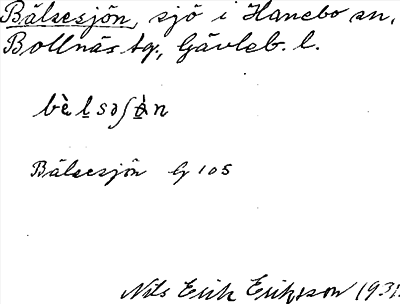 Bälsesjön, sjö i Hanebo sn,
Bollnäs tg., Gävleb. l.
bὲlsəʃὰn
Bälsesjön G 105
Nils Erik Eriksson 1931.